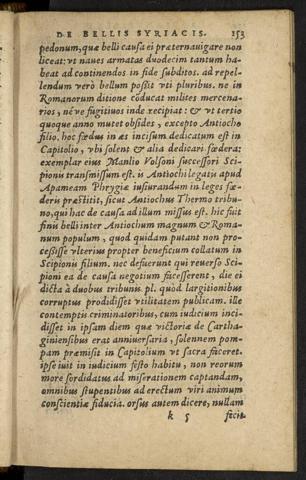 DE BELLIS SYRIACIS. 153
pedonum, quæ belli causa ei præternauigare non
liceat: vt naues armatas duodecim tantum ha-
beat ad continendos in fide subditos. ad repel-
lendum verò bellum possit vti pluribus. ne in
Romanorum ditione cōducat milites mercena-
rios, néve fugitiuos inde recipiat: & vt tertio
quoque anno mutet obsides, excepto Antiocho
filio. hoc fœdus in æs incisum dedicatum est in
Capitolio, vbi solent & alia dedicari fœdera:
exemplar eius Manlio Volsoni successori Sci-
pionis transmissum est. is Antiochi legatis apud
Apameam Phrygiæ iusiurandum in leges fœ-
deris præstitit, sicut Antiochus Thermo tribu-
no, qui hac de causa ad illum missus est. hic fuit
finis belli inter Antiochum magnum & Roma-
num populum, quod quidam putant non pro-
cessisse vlterius propter beneficium collatum in
Scipionis filium. nec defuerunt qui reuerso Sci-
pioni ea de causa negotium facesserent, die ei
dicta à duobus tribunis pl. quòd largitionibus
corruptus prodidisset vtilitatem publicam. ille
contemptis criminatoribus, cum iudicium inci-
disset in ipsam diem quæ victoriæ de Cartha-
giniensibus erat anniuersaria, solennem pom-
pam præmisit in Capitolium vt sacra faceret.
ipse iuit in iudicium festo habitu, non reorum
more sordidatus ad miserationem captandam,
omnibus stupentibus ad erectum viri animum
conscientiæ fiducia. orsus autem dicere, nullam
k 5 facit